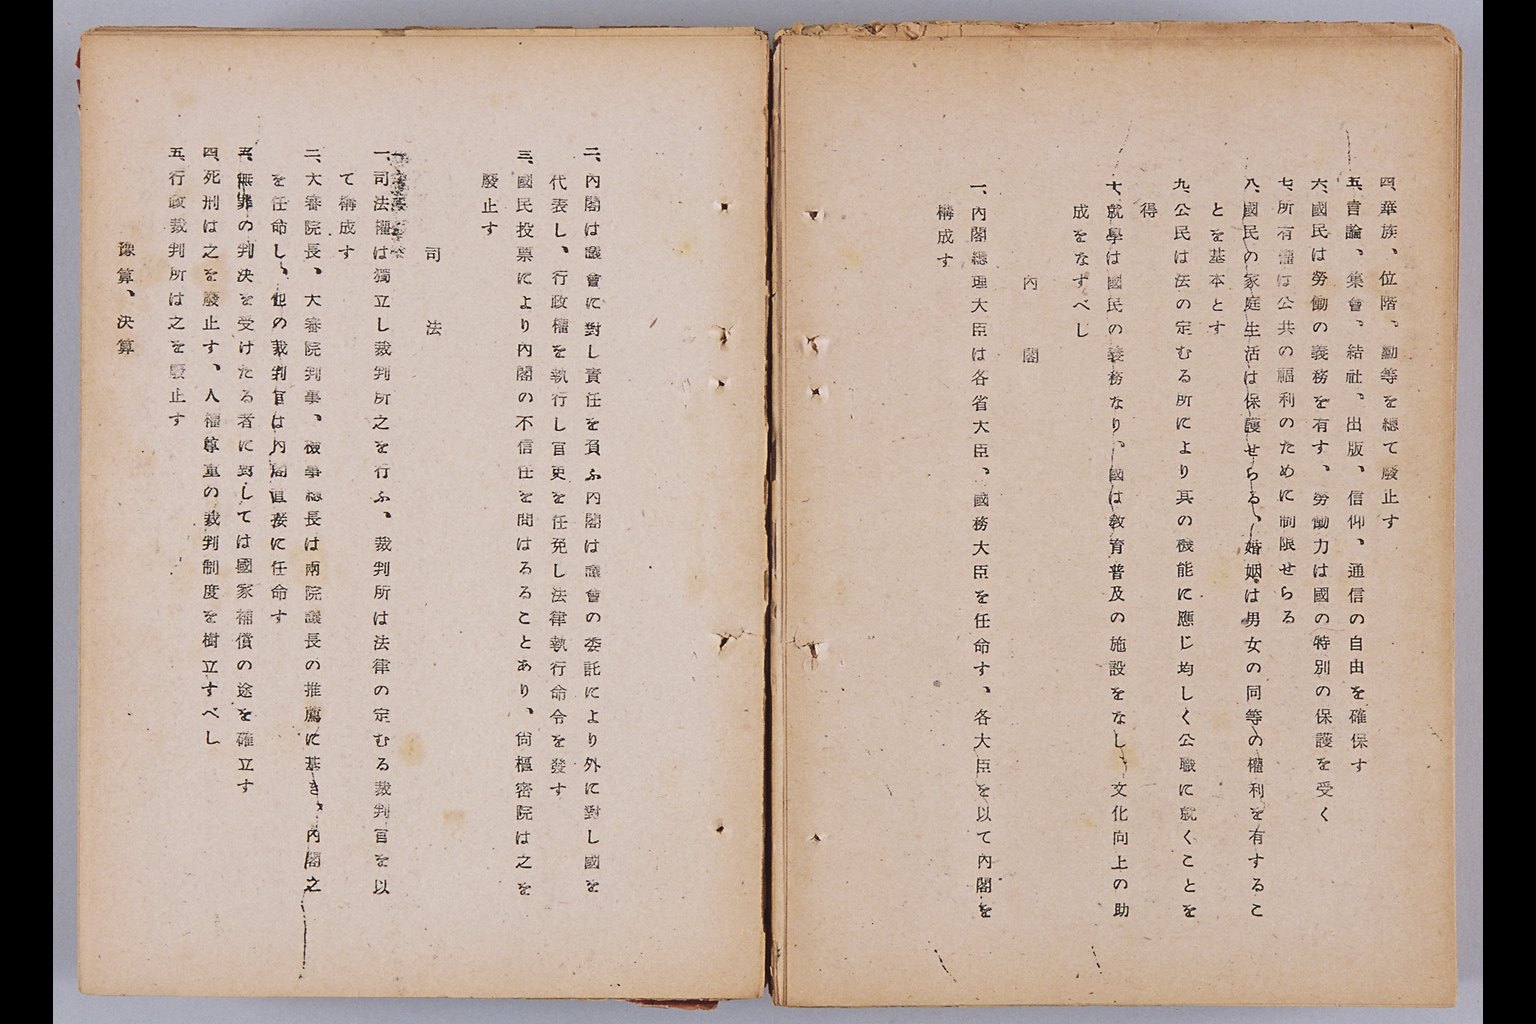 四、華族、位階、勳等を總て廢止す
五、言論、集會、結社、出版、信仰、通信の自由を確保す
六、國民は勞働の義務を有す、勞働力は國の特別の保護を受く
七、所有權は公共の福利のために制限せらる
八、國民の家庭生活は保護せらる、婚姻は男女の同等の權利を有するこ
とを基本とす
九、公民は法の定むる所により其の機能に應じ均しく公職に就くことを
得
十、就學は國民の義務なり、國は教育普及の施設をなし、文化向上の助
成をなすべし
內閣
一、內閣總理大臣は各省大臣、國務大臣を任命す、各大臣を以て內閣を
構成す
二、內閣は議會に對し責任を負ふ內閣は議會の委託により外に對し國を
代表し、行政權を執行し官吏を任免し法律執行命令を發す
三、國民投票により內閣の不信任を問はるることあり、尙樞密院は之を
廢止す
司法
一、司法權は獨立し裁判所之を行ふ、裁判所は法律の定むる裁判官を以
て構成す
二、大審院長、大審院判事、檢事總長は兩院議長の推薦に基き、內閣之
を任命し、他の裁判官は內閣直接に任命す
三、無罪の判決を受けたる者に對しては國家補償の途を確立す
四、死刑は之を廢止す、人權尊重の裁判制度を樹立すべし
五、行政裁判所は之を廢止す
豫算、決算